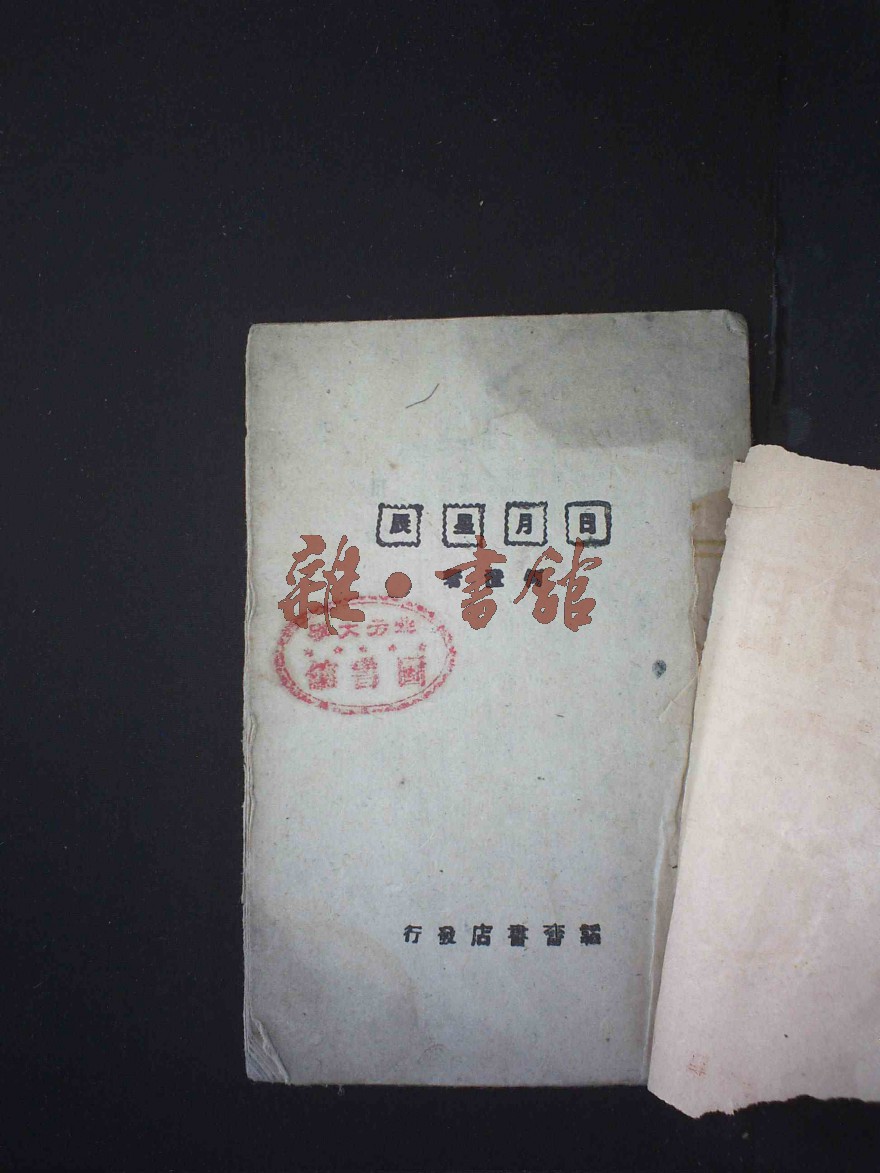 日月星辰
著
雜·書館
北方大學
圖書館
韜奮書店發行